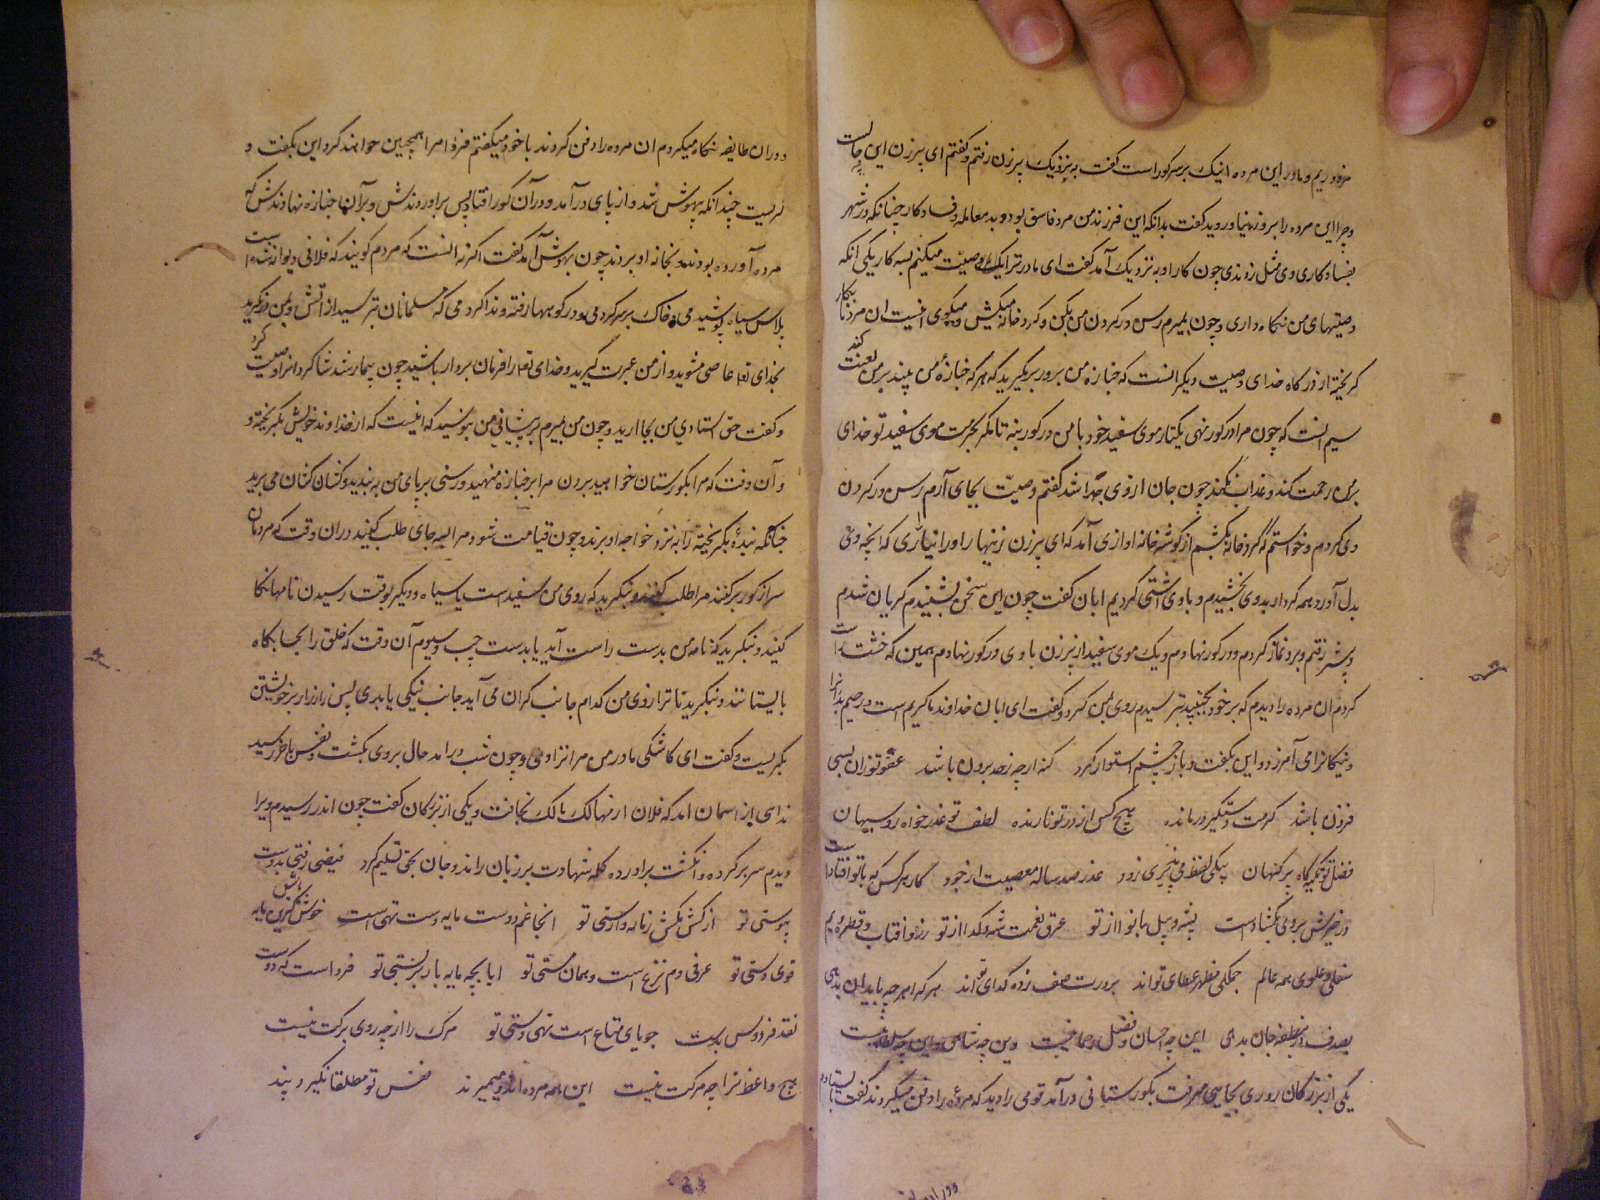 مزدوریم و مادر این مرده اینک بر سر کور است کفت به نزدیک پیرزن رفتم و کفتم ای پیرزن این چه حالست
و چرا این مرده را بروز نیاوردید کفت بدانکه این فرزند من مرد فاسق بود و بد معامله و فساد کار چنانکه در شهر
بفساد کاری وی مثل زدندی چون کار او به نزدیک آمد کفت ای مادر ترا یک وصیت میکنم بسه کار یکی انکه
وصیتهای من نکاه داری و چون بمیرم رسن در کردن من بکن و کرد خانه میکش و میکوی اینست ان مرد نابکار
کریخته از درکاه خدای وصیت دیکر انست که جنازه من بروز برمکیرید که هر که جنازهٔ من بیند بر من لعنت کند
سیم انست که چون مرا در کور نهی یکتار موی سفید خود با من در کور بنه تا مکر بحرمت موی سفید تو خدای
بر من رحمت کند و عذاب نکند چون جان از وی جدا شد کفتم وصیت بجای آرم رسن در کردن
وی کردم و خواستم که کرد خانه بکشم از کوشه خانه اوازی آمد که ای پیرزن زنهار او را نیازاری که انچه وی
بدل آورد همه کردار بدوی بخشیدم و با وی آشتی کردیم ابان کفت چون این سخن بشنیدم کریان شدم
و پیش رفتم و برو نماز کردم و در کور نهادم و یک موی سفید از پیرزن با وی در کور نهادم همین که خشت راست
کردم ان مرده را دیدم که بر خود بجنبید بترسیدم روی بمن کرد و کفت ای ابان خداوند ما کریم است و رحیم بدانرا
و نیکانرا می آمرزد و این بکفت و باز چشم استوار کرد کنه ارچه ز حد برون باشد عفو تو زان بسی
فزون باشد کرمت دستکیر درمانده هیچ کس از در تو نا رانده لطف تو عذر خواه روسیهان
فضل تو تکیه کاه پر کنهان بیکی لفظ می پذیری زود عذر صد ساله معصیت از خود کار هر کس که با تو افتادست
در خیرش بروی بکشادست پشه و پیل با نوا از تو غرق نعمت شه و کدا از تو ذره و افتاب و قطره و یم
سفلی و علوی همه عالم جملکی مظهر عطای تواند بر درت صف زده کدای تو اند هر که را هر چه باید ان بدهی
بصدف در بنطفه جان بدهی این چه احسان و فضل و رحمانیت وین چه شاهی و این چه سلطانیت
یکی از بزرکان روزی بجایی میرفت بکورستانی درآمد قومی را دید که مردهٔ را دفن میکردند کفت بایستادم
و در ان طایفه نکاه میکردم ان مرده را دفن کردند با خود میکفتم فردا مرا همچنین خواهند کرد این بکفت و
بکریست چندانکه بیهوش شد و از پای درآمد و در آن کور افتاد پس براوردندش و بر آن جنازه نهادندش که
مرده آورده بودند و بخانه او بردند چون بهوش آمد کفت اکر نه انست که مردم کویند که فلانی دیوانه شده است
پلاس سیاه پوشیدمی و خاک بر سر کردمی و در کوهها رفته و ندا کردمی که مسلمانان بترسید از آتش و بمن نکرید
بخدای تعا عاصی مشوید و از من عبرت کیرید و خدای تعا را فرمان بردار باشید چون بیمار شد شاکردانرا وصیت کرد
و کفت حق استادی من بجا ارید و چون من بمیرم بر پیشانی من بنویسید که اینست که از خداوند خویش بکریخته و
و آن وقت که مرا بکورستان خواهید بردن مرا بر جنازه منهید و رسنی بر پای من به بندید و کشان کشان می برید
چنانکه بندهٔ بکریخته را به نزد خواجه او برند و چون قیامت شود مرا سه جای طلب کنید در ان وقت که مردمان
سر از کور برکنند مرا طلب کنند و بنکرید که روی من سفید است یا سیاه و دیکر بوقت رسیدن نامها نکا
کنید و بنکرید که نامه من بدست راست آید یا بدست چپ و سیوم آن وقت که خلق را بحسابکاه
بایستانند و بنکرید تا ترازوی من کدام جانب کران می آید جانب نیکی یا بدی پس زار زار بر خویشتن
بکریست و کفت ای کاشکی مادر من مرا نزادی و چون شب درامد حال بر وی بکشت و نفس باخر رسید
ندایی از اسمان امد که فلان از مهالک ناک نجات یافت و یکی از بزرکان کفت چون اندر رسیدم ویرا
دیدم سر بر کرده و انکشت براورده کلمه شهادت بر زبان راند و جان بحق تسلیم کرد فیضی رفتی بدوست
پیوستی تو از کش مکش زمانه وارستی تو انجا غم دوست مایه دست تهی است خوش باش
قوی دستی تو عرفی دم نزع است و همان مستی تو ایا بچه مایه بار بربستی تو فرداست که دوست
نقد فردوس بدست جویای متاع است تهی دستی تو مرک را از چه روی برکت نیست
هیچ واعظ ترا چو مرکت نیست این همه مرده اند و میمیرند نفس تو مطلقا نکیرد پند